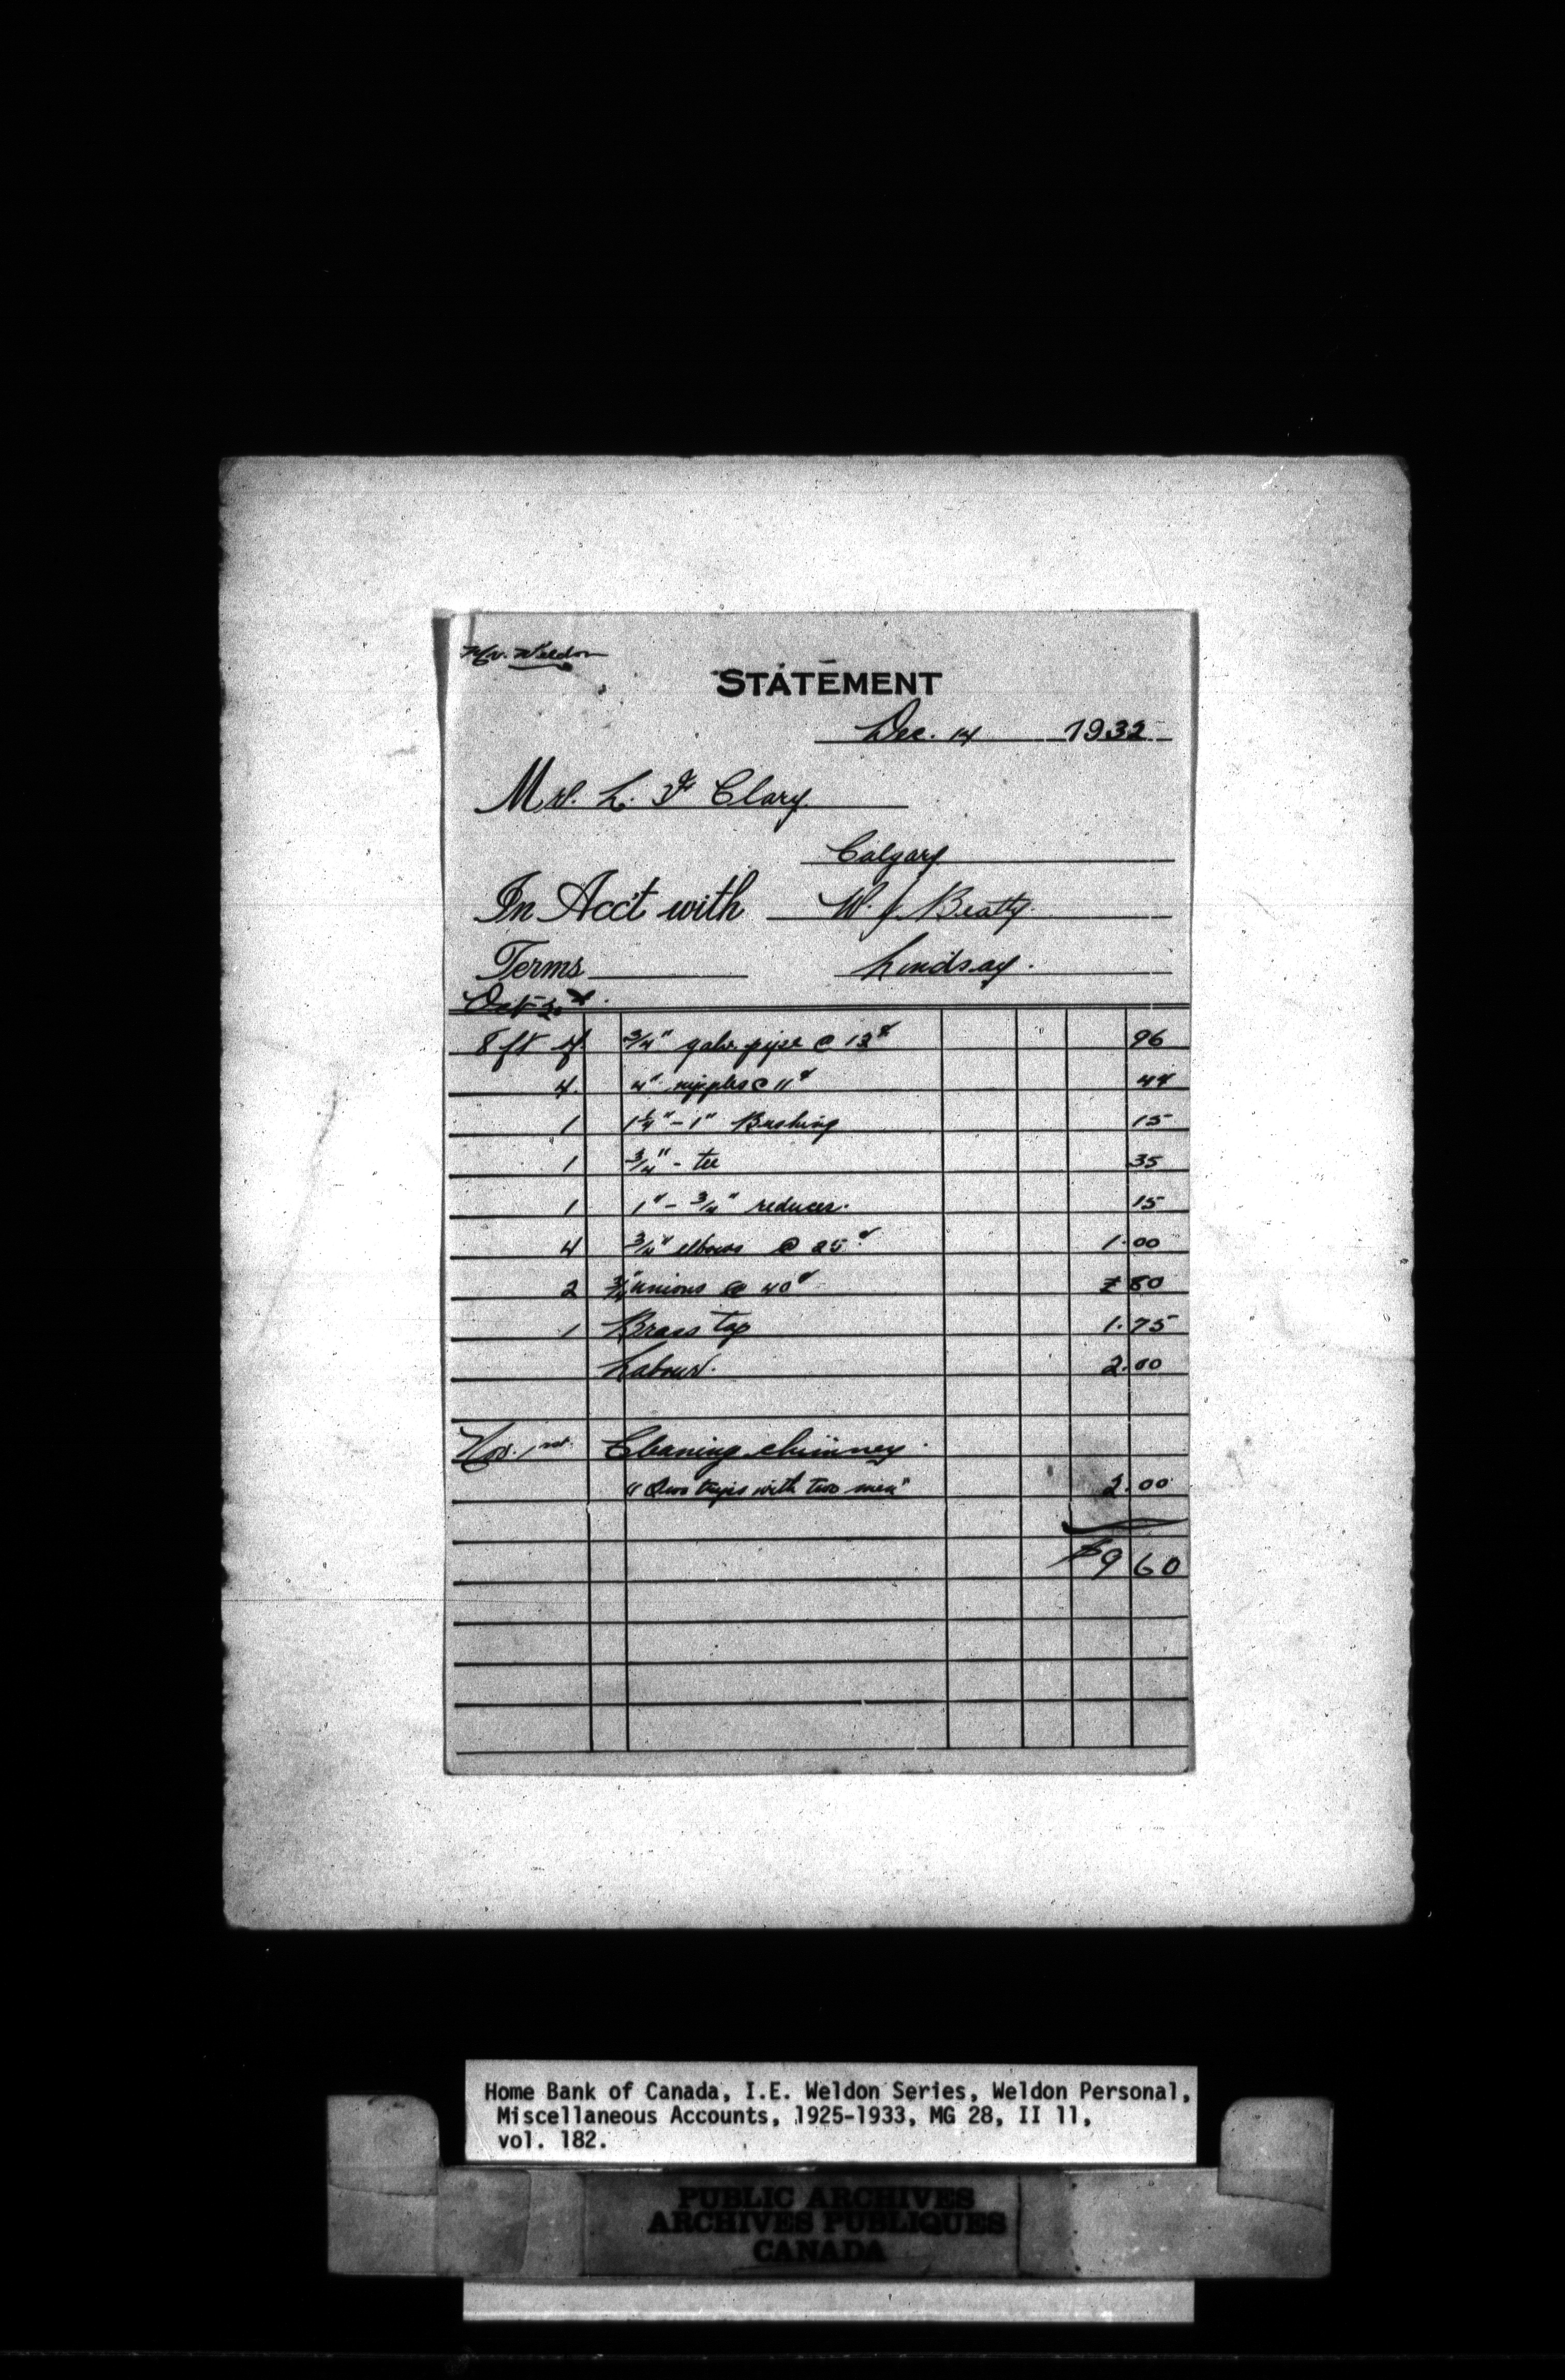 Mr. Weldon
STATEMENT
Dec. 14 1932
Mr. L. F Clary
Calgary
In Acc't with W. J. Beatty.
Terms Lindsay.
Oct
8 ft of 3/4" galv. pipe @ 12¢ 96
4 4" nipples @ 11¢ 44
1 1¼" - 1" Bushing 15
1 3/4" - tee 35
1 1" - 3/4" reducer. 15
4 3/4" elbows @ 25¢ 1.00
2 3/4" unions @ 40¢ 80
1 Brass Tap 1.75
Labour. 2.00
Nov. 1st. Cleaning chimney.
"two trips with two men" 2.00
$9 60
Home Bank of Canada, I.E. Weldon Series, Weldon Personal,
Miscellaneous Accounts, 1925-1933, MG 28, II 11,
vol. 182.
PUBLIC ARCHIVES
ARCHIVES PUBLIQUES
CANADA